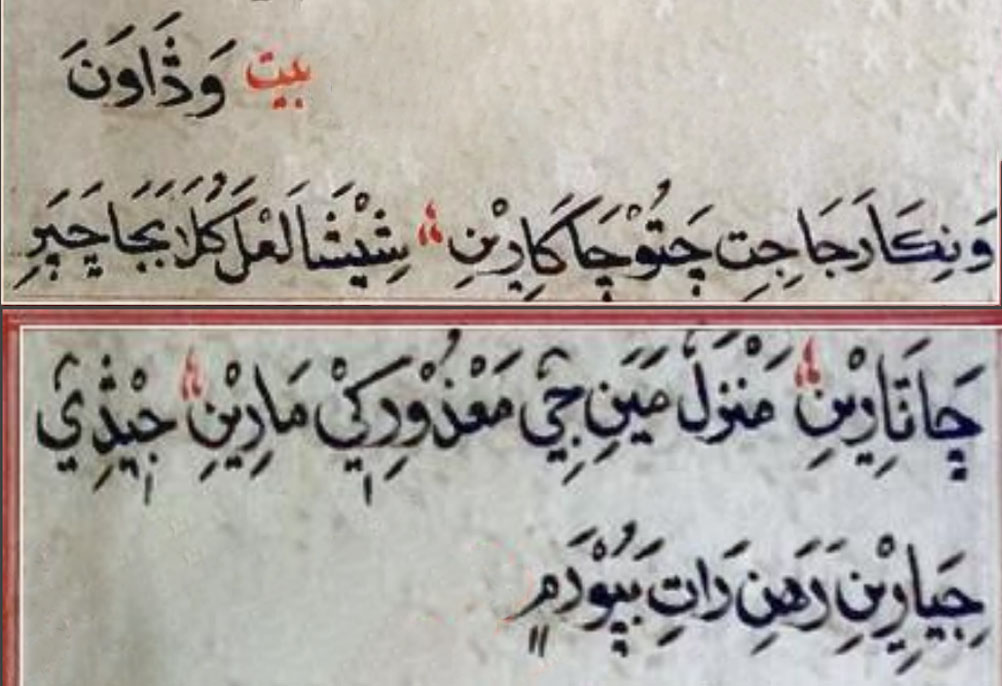 بيت وَڎَاوَنَ
وَنِڪَارَ جَا جِتِ چَتُوْ چَاڪَارِيْنِ ؞ شِيْشَا لَعْلَ کُلَابَ جَا چَپَرِ
چَاتَارِيْنِ ؞ مَنْزَلَ مَيَنِ جِيْ مَعْذُوْرِ ڪِيْ مَارِيْنِ ؞ جِيْڎِيْ
جِيَارِيْنِ رَهَنِ رَاتِ بَپُوْرَمِ